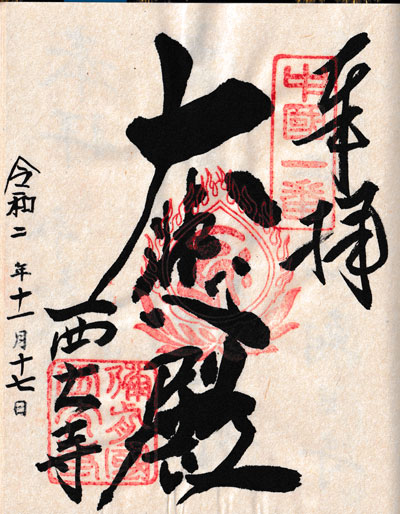 奉拝
中國一番
大悲殿
西大寺
備前國
令和二年十一月十七日